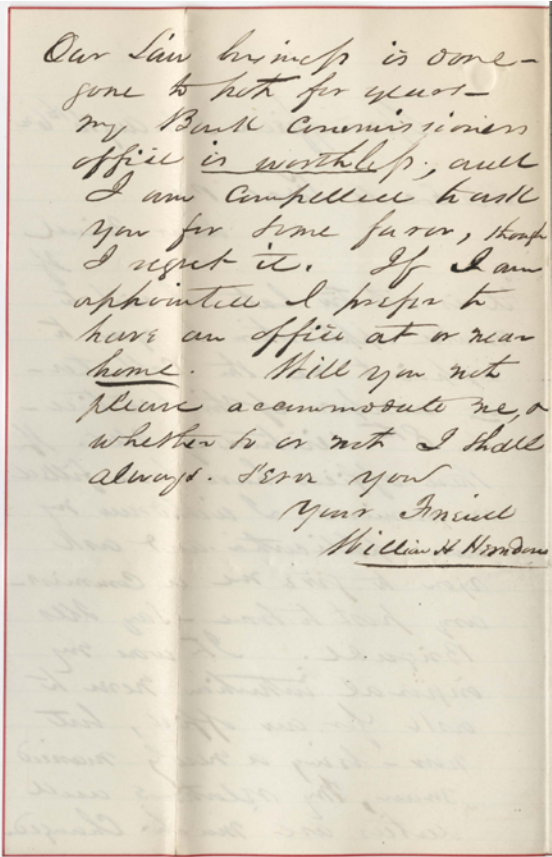 Our Law business is done —
gone to pot for years —
my Bank Commissioners
office is worthless, and
I am compelled to ask
you for some favor, though
I regret it. If I am
appointed I prefer to
have an office at or near
home. Will you not
please accommodate me, &
whether so or not I shall
always serve you
Your Friend
William H Herndon